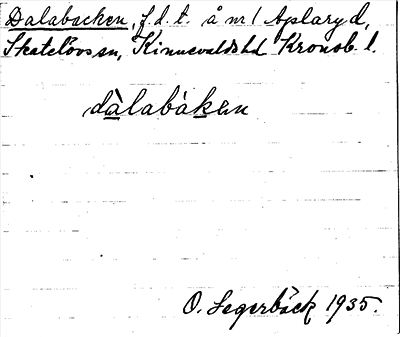 Dalabacken, f.d.t. å nr 1 Aplaryd,
Skatelövs sn, Kinnevalds hd Kronob. l.
dàlabàken
O. Segerbäck 1935.